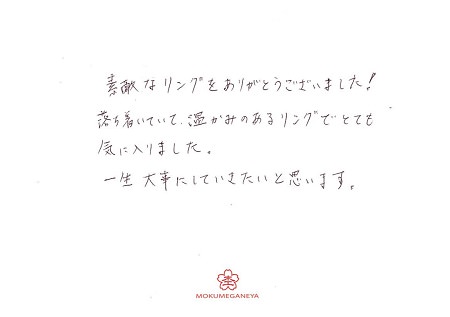 素敵なリングをありがとうございました!
落ち着いていて、温かみのあるリングでとても
気に入りました。
一生大事にしていきたいと思います。
MOKUMEGANEYA